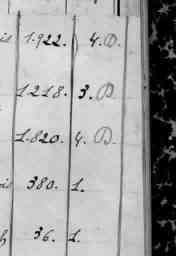 is 1.922. 4.D.
1.218. 3.D
1.820. 4.D.
is 380. 1.
h 36. 1.